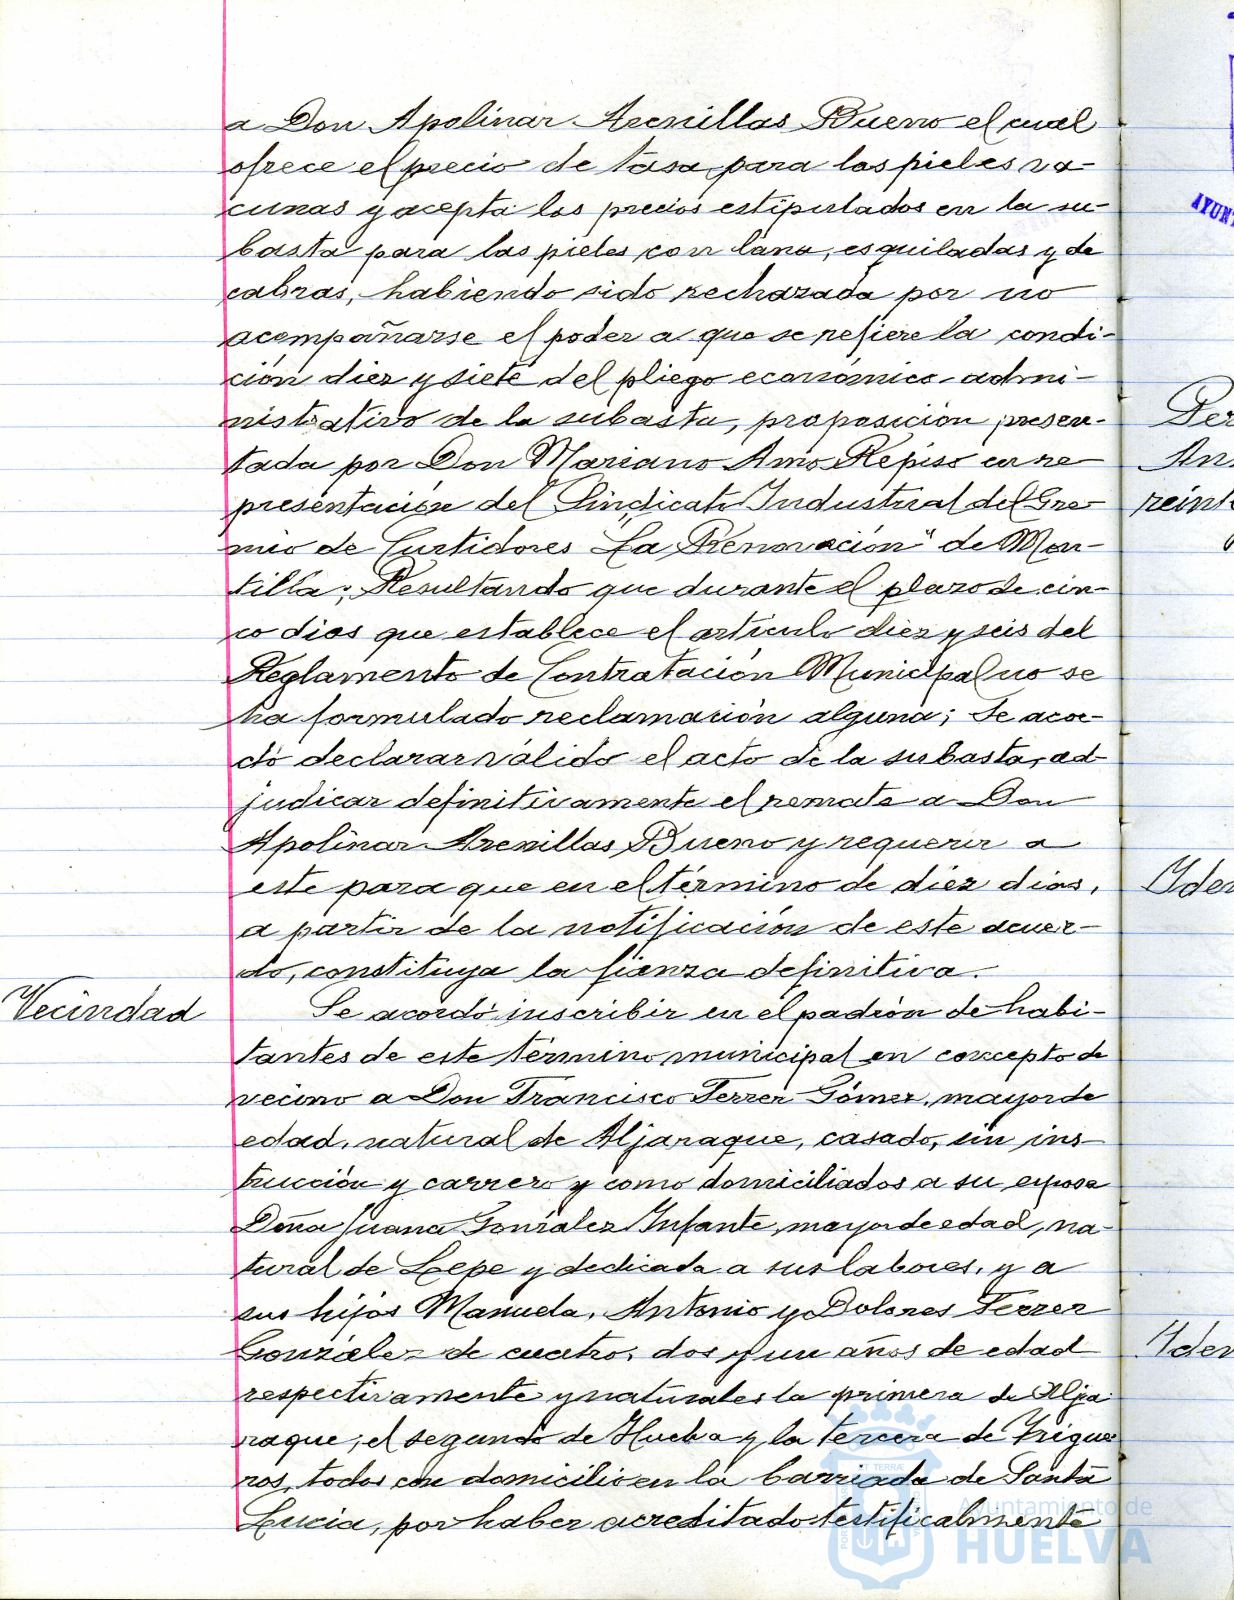 a Don Apolinar Arenillas Bueno el cual
ofrece el precio de tasa para las pieles va-
cunas y acepta los precios estipulados en la su-
basta para las pieles con lana, esquiladas y de
cabras, habiendo sido rechazada por no
acompañarse el poder a que se refiere la condi-
ción diez y siete del pliego económico-admi-
nistrativo de la subasta, proposición presen-
tada por Don Mariano Amo Repiso en re
presentación del Sindicato Industrial del Gre-
mio de Curtidores "La Renovación" de Mon-
tilla; Resultando que durante el plazo de cin-
co dias que establece el artículo diez y seis del
Reglamento de Contratación Municipal no se
ha formulado reclamación alguna; Se acor-
dó declarar válido el acto de la subasta, ad-
judicar definitivamente el remate a Don
Apolinar Arenillas Bueno y requerir a
este para que en el término de diez dias,
a partir de la notificación de este acuer-
do, constituya la fianza definitiva.
Vecindad
Se acordó inscribir en el padrón de habi-
tantes de este término municipal en concepto de
vecino a Don Francisco Ferrer Gómez, mayor de
edad, natural de Aljaraque, casado, sin ins-
trucción y carrero y como domiciliados a su esposa
Doña Juana González Infante, mayor de edad, na-
tural de Lepe y dedicada a sus labores, y a
sus hijos Manuela, Antonio y Dolores Ferrer
González de cuatro, dos y un años de edad
respectivamente y naturales la primera de Alja
raque; el segundo de Huelva y la tercera de Trigue
ros, todos con domicilio en la barriada de Santa
Lucia, por haber acreditado testificalmente
Ayuntamiento de
HUELVA